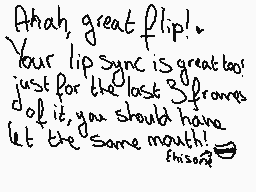 Ahah, great flip!
Your lip sync is great too!
just for the last 3 frames
of it, you should have
let the same mouth!
this one